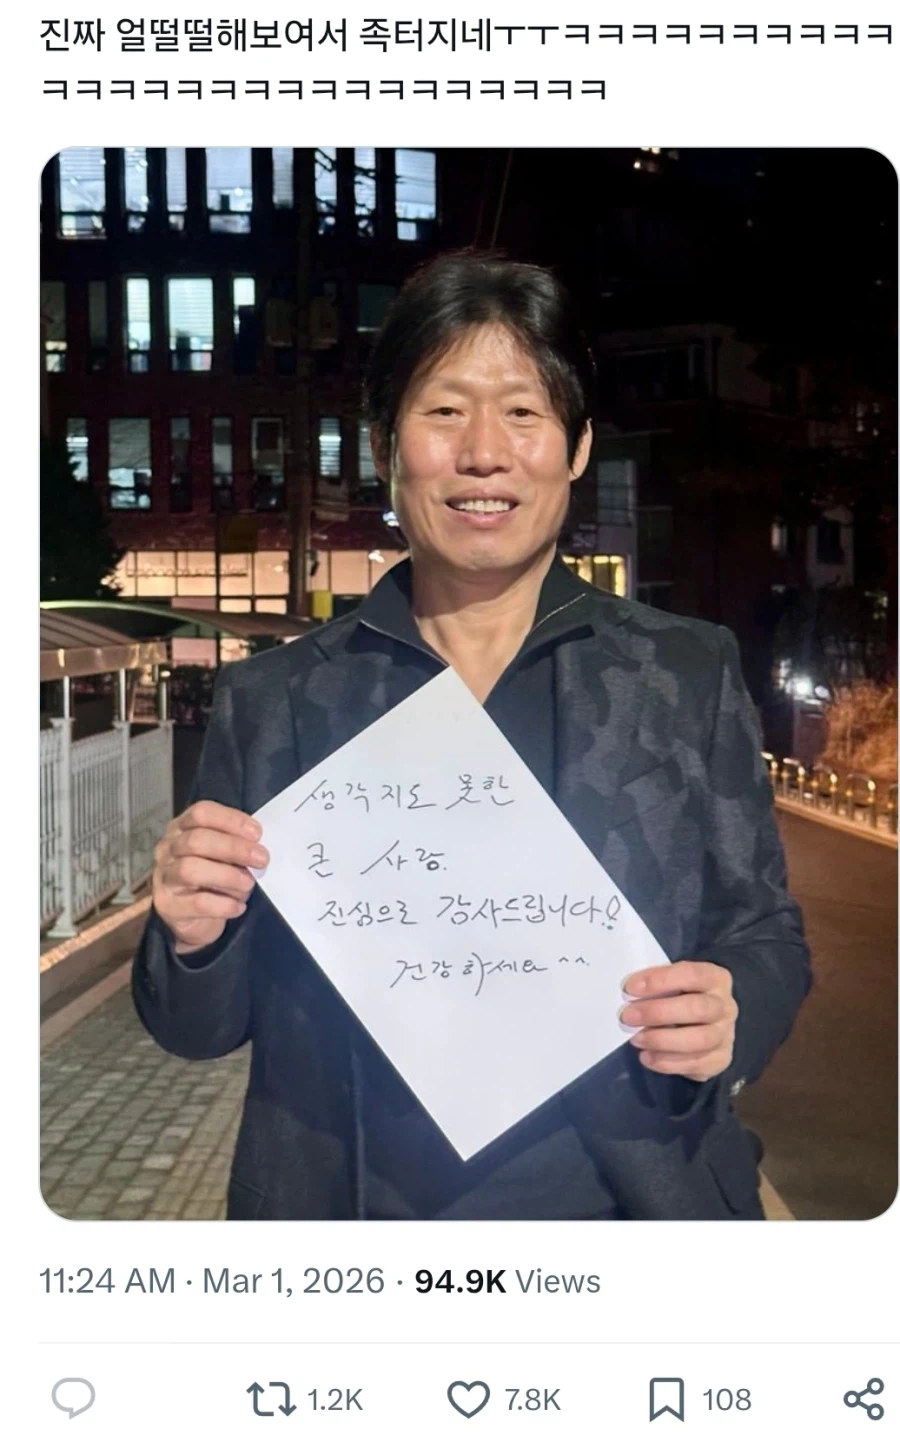 진짜 얼떨떨해보여서 족터지네ㅜㅜㅋㅋㅋㅋㅋㅋㅋㅋㅋㅋ
ㅋㅋㅋㅋㅋㅋㅋㅋㅋㅋㅋㅋㅋㅋㅋㅋㅋ
생각지도 못한
큰 사랑.
진심으로 감사드립니다!
건강하세요^^.
11:24 AM · Mar 1, 2026 · 94.9K Views
1.2K 7.8K 108